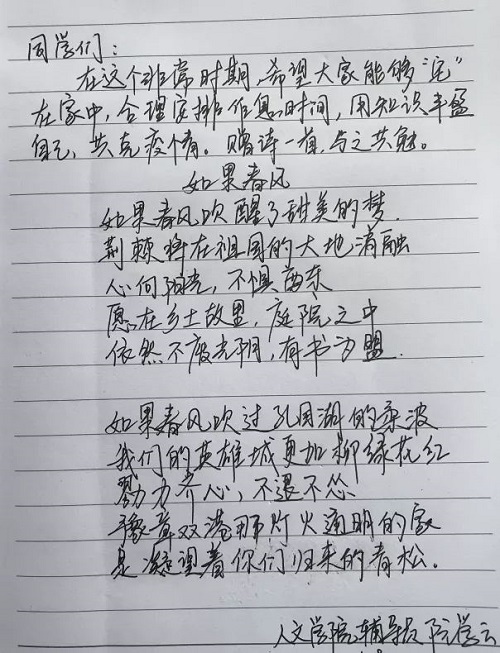 同学们：
在这个非常时期，希望大家能够“宅”
在家中，合理安排作息时间，用知识丰盈
自己，共克疫情。赠诗一首，与之共勉。
如果春风
如果春风吹醒了甜美的梦
荆棘将在祖国的大地消融
心向阳光，不惧西东
愿在乡土故里，庭院之中
依然不废光阴，有书为盟
如果春风吹过孔目湖的柔波
我们的英雄城更加柳绿花红
勠力齐心，不退不怂
豫章双港那灯火通明的家
是凝望着你们归来的青松。
人文学院辅导员 阮学云